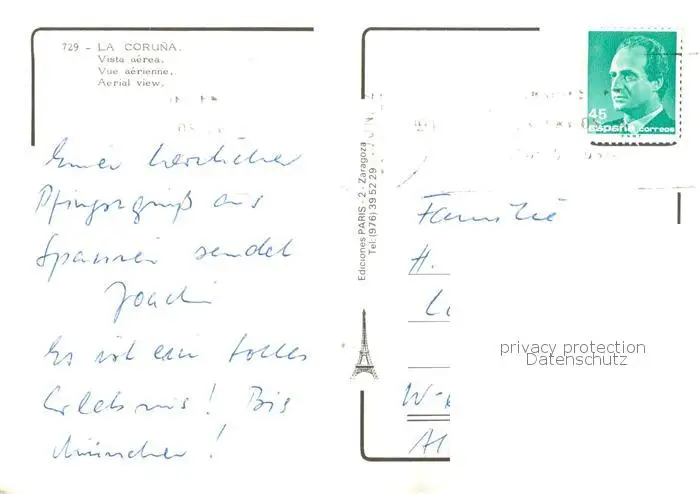 729 - LA CORUÑA.
Vista aérea.
Vue aérienne.
Aerial view.
Einen herzlichen
Pfingstgruß aus
Spanien sendet
Joachim
Es ist ein tolles
Erlebnis! Bis
München!
Ediciones PARIS - 2 - Zaragoza
Tel: (976) 39 52 29
45
españa correos
Familie
H.
privacy protection
Datenschutz